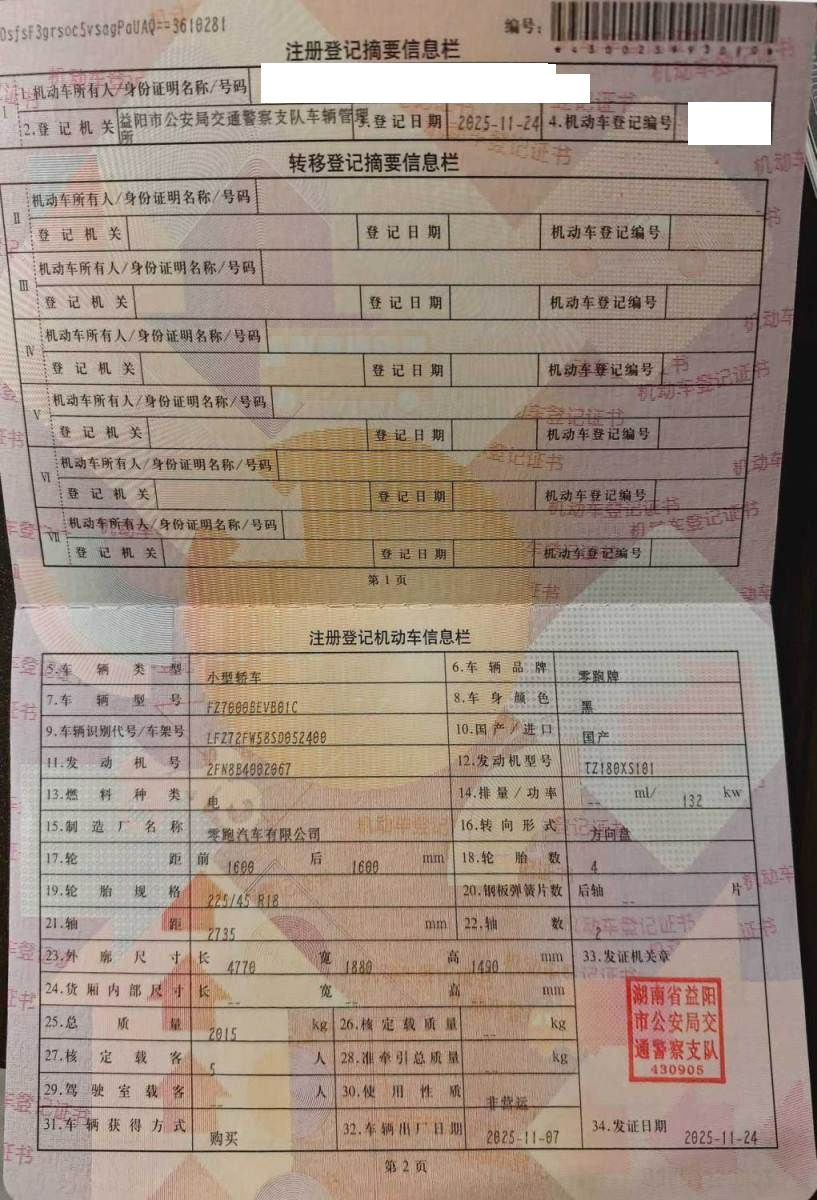 OsfsF3grsoc5vsagPaUAQ==3610281
编号:
注册登记摘要信息栏
Ⅰ 1.机动车所有人/身份证明名称/号码
2.登记机关 益阳市公安局交通警察支队车辆管理所 3.登记日期 2025-11-24 4.机动车登记编号
转移登记摘要信息栏
Ⅱ 机动车所有人/身份证明名称/号码
登记机关 登记日期 机动车登记编号
Ⅲ 机动车所有人/身份证明名称/号码
登记机关 登记日期 机动车登记编号
Ⅳ 机动车所有人/身份证明名称/号码
登记机关 登记日期 机动车登记编号
Ⅴ 机动车所有人/身份证明名称/号码
登记机关 登记日期 机动车登记编号
Ⅵ 机动车所有人/身份证明名称/号码
登记机关 登记日期 机动车登记编号
Ⅶ 机动车所有人/身份证明名称/号码
登记机关 登记日期 机动车登记编号
第1页
注册登记机动车信息栏
5.车辆类型 小型轿车 6.车辆品牌 零跑牌
7.车辆型号 FZ7000BEVB01C 8.车身颜色 黑
9.车辆识别代号/车架号 LFZ72FW58SD052400 10.国产/进口 国产
11.发动机号 2FN8B4002067 12.发动机型号 TZ180XS101
13.燃料种类 电 14.排量/功率 -- ml/ 132 kw
15.制造厂名称 零跑汽车有限公司 16.转向形式 方向盘
17.轮距 前 1600 后 1600 mm 18.轮胎数 4
19.轮胎规格 225/45 R18 20.钢板弹簧片数 后轴 -- 片
21.轴距 2735 mm 22.轴数 2
23.外廓尺寸 长 4770 宽 1880 高 1490 mm 33.发证机关章
24.货厢内部尺寸 长 -- 宽 -- 高 -- mm
湖南省益阳
市公安局交
通警察支队
430905
25.总质量 2015 kg 26.核定载质量 -- kg
27.核定载客 5 人 28.准牵引总质量 -- kg
29.驾驶室载客 -- 人 30.使用性质 非营运
31.车辆获得方式 购买 32.车辆出厂日期 2025-11-07 34.发证日期 2025-11-24
第2页